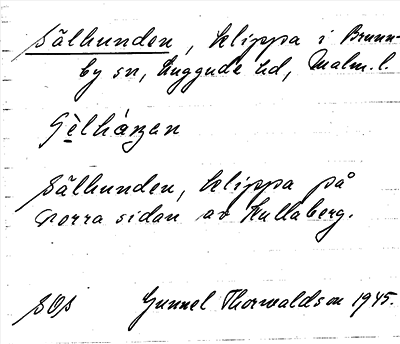 Sälhunden, klippa i Brunn-
by sn, Luggude hd, Malm. l.
Sälhunden, klippa på
norra sidan av Kullaberg.
SOS Gunnel Thorwaldson 1945.